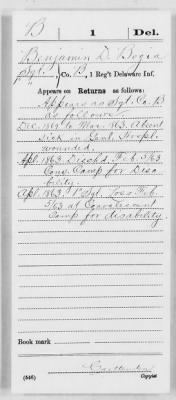 B 1 Del.
Benjamin D. Bogia
Sgt., Co. B, 1 Reg't Delaware Inf.
Appears on Returns as follows:
Appears as Sgt. Co. B
as follows.
Dec. 1862 to Mar. 1863. Absent
Sick in Genl. Hospl.
wounded.
Apl. 1863. Disch'd. Feb. 5/63
Conv. Camp for Disa
bility.
Apl. 1863. 1" Sgt. Loss Feb.
5/63 at Convalescent
Camp for disability.
Book mark
(546) Copyist.